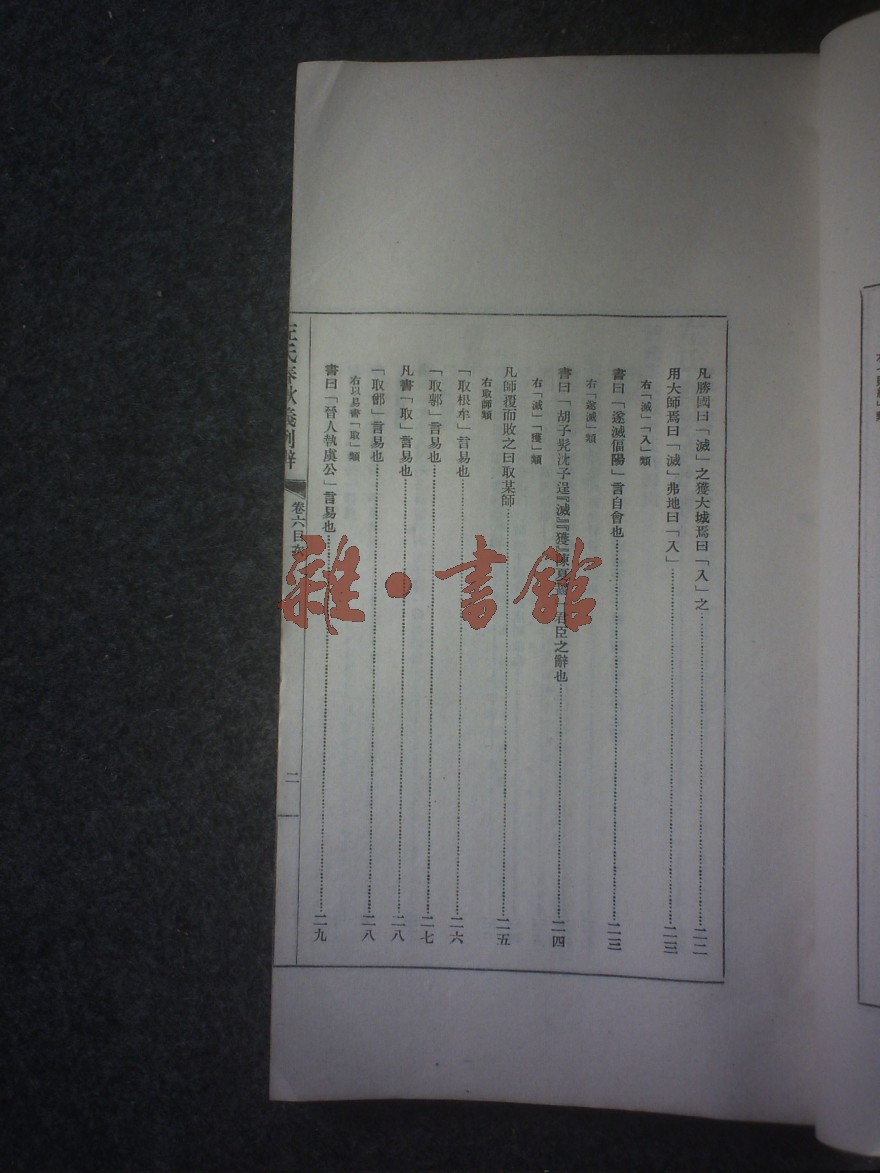 凡勝國曰「滅」之獲大城焉曰「入」之……二二
用大師焉曰「滅」弗地曰「入」……二三
右「滅」「入」類
書曰「遂滅偪陽」言自會也……二三
右「遂滅」類
書曰「胡子髠沈子逞『滅』『獲』陳夏齧」君臣之辭也……二四
右「滅」「獲」類
凡師覆而敗之曰取某師……二五
右取師類
「取根牟」言易也……二六
「取鄟」言易也……二七
凡書「取」言易也……二八
「取邿」言易也……二八
右以易書「取」類
書曰「晉人執虞公」言易也……二九
左氏春秋義例辭
卷六目次
二
雜·書館